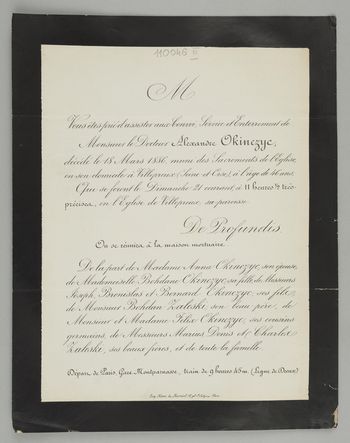 110046 II
M
Vous êtes prié d'assister aux Convoi, Service et Enterrement de
Monsieur le Docteur Alexandre Okinczyc,
décédé le 18 Mars 1886, muni des Sacrements de l'Eglise,
en son domicile à Villepreux (Seine et Oise), à l'âge de 46 ans.
Qui se feront le Dimanche 21 courant, à 11 heures ½ très
précises, en l'Eglise de Villepreux sa paroisse.
De Profundis.
On se réunira à la maison mortuaire.
De la part de Madame Anna Okinczyc, son épouse,
de Mademoiselle Bohdane Okinczyc, sa fille, de Messieurs
Joseph, Bronislas et Bernard Okinczyc, ses fils,
de Monsieur Bohdan Zaleski, son beau père, de
Monsieur et Madame Félix Okinczyc, ses cousins
germains, de Messieurs Marius Denis et Charles
Zaleski, ses beaux frères, et de toute la famille.
Départ de Paris, Gare Montparnasse, train de 9 heures 45 m. (Ligne de Dreux)